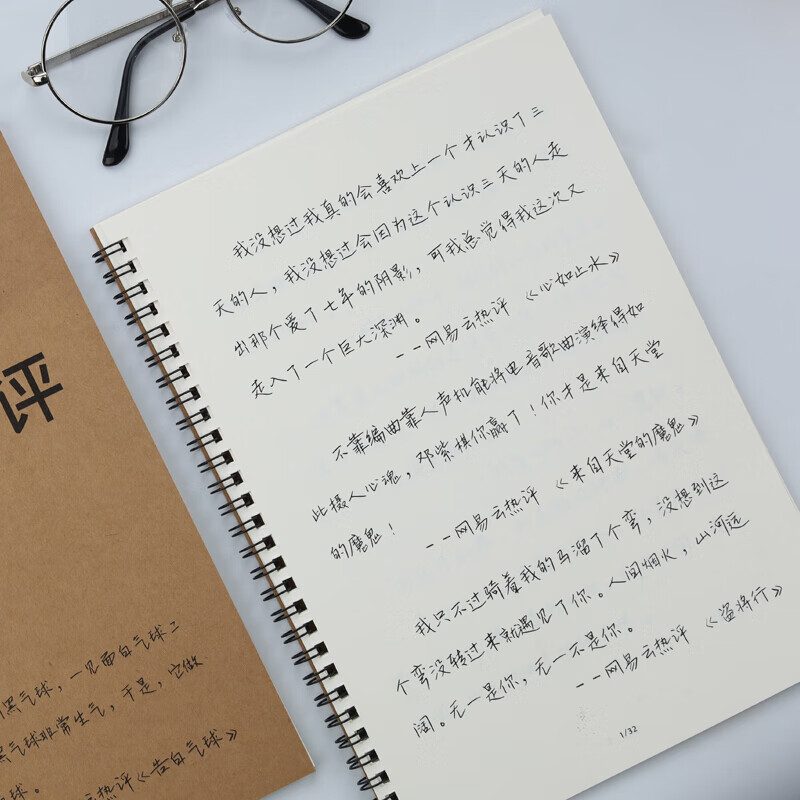 我没想过我真的会喜欢上一个才认识了三
天的人，我没想过会因为这个认识三天的人走
出那个爱了七年的阴影，可我总觉得我这次又
走入了一个巨大深渊。
——网易云热评 《心如止水》
不靠编曲靠人声机能将电音歌曲演绎得如
此摄人心魂，邓紫棋你赢了！你才是来自天堂
的魔鬼！
——网易云热评 《来自天堂的魔鬼》
我只不过骑着我的马溜了个弯，没想到这
个弯没转过来就遇见了你。人间烟火，山河远
阔。无一是你，无一不是你。
——网易云热评 《盗将行》
1/32
评
黑气球，一见面白气球二
黑气球非常生气，于是，它做
球。
热评《告白气球》